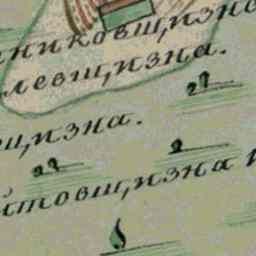 никовщизна
левщизна.
щизна.
йтовщизна